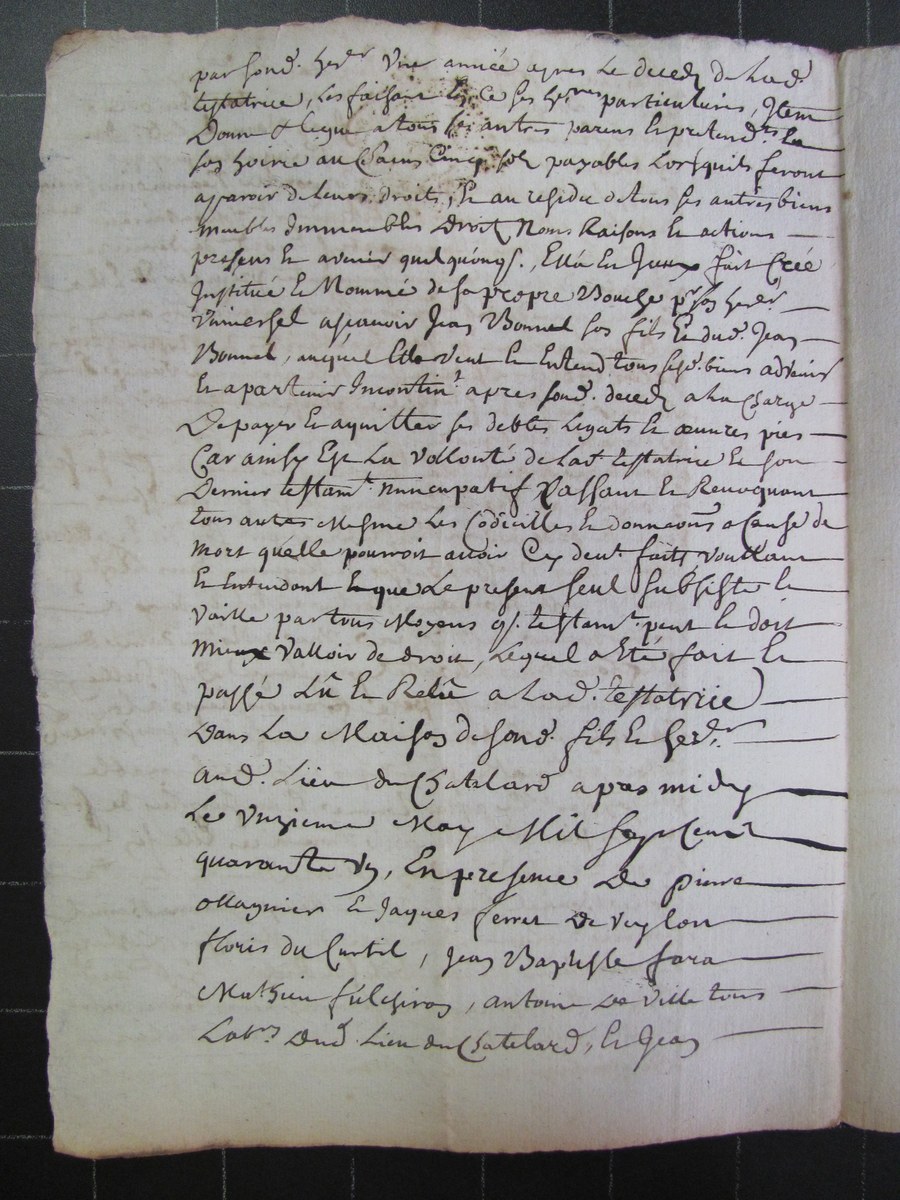 par sond. herer une année apres le deceds de lad.
testatrice, les faisant en ce ses hers particuliers, Item
Donne & legue a tous ses autres parens et pretends en
son hoirie au chacun Cinq sols payables lorsquils feront
aparoir de leurs droits, Et au residu de tous ses autres biens
meubles Immeubles Droit Noms Raisons et actions
presens et avenir quelquonqs. Ella a fait Créé
Institué et Nommé de sa propre Bouche pr son herer
Universel ascavoir Jean Bonnel son fils et dud. Jean
Bonnel, auquel Elle veut et Entend tous sesd. biens advenir
et apartenir Incontint apres sond. deceds a la Charge
De payer et aquitter ses debtes legats et œuvres pies
Car ainsy Est La Vollonté de lad testatrice et son
Dernier testamt nuncupatif Cassant et Revoquant
tous autres Mesme les Codicilles et donnaons a Cause de
mort quelle pourroit avoir Cy devt faits voullant
et Entendant que le present seul subsiste et
vaille par tous Moyens qs. testamt peut et doit
mieux Valloir de droit, lequel a Eté fait et
passé Lû et Relû a lad. testatrice
Dans la Maison de sond. fils et herer
aud. lieu du Chatelard apres midy
Le Unzieme May Mil sept Cent
quarante Un, En presence de pierre
Magnier et Jaques ferret de
floris du Curtil, Jean Baptiste fara
Mathieu fulchiron, antoine De Ville tous
Labrs dud. lieu du Chatelard, et Jean